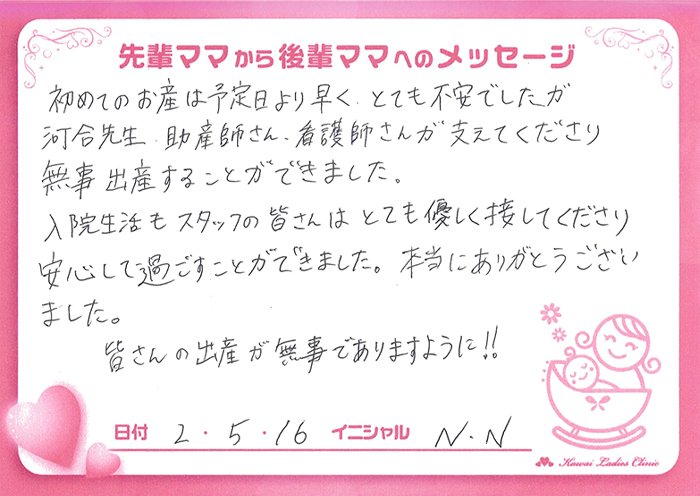 先輩ママから後輩ママへのメッセージ
初めてのお産は予定日より早く、とても不安でしたが
河合先生、助産師さん、看護師さんが支えてくださり
無事出産することができました。
入院生活もスタッフの皆さんはとても優しく接してくださり
安心して過ごすことができました。本当にありがとうござい
ました。
皆さんの出産が無事でありますように!!
日付 2・5・16 イニシャル N.N
Kawai Ladies Clinic